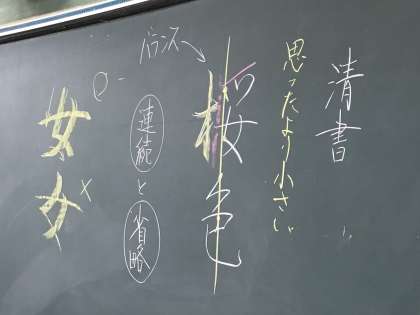 清書
思ったより小さい
バランス
桜色
連続と省略
女
女
×